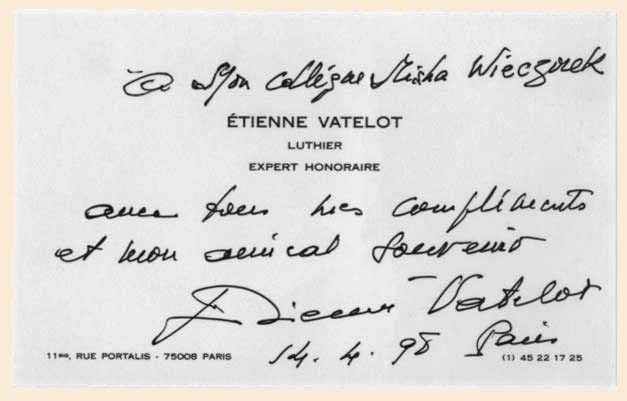 à Mon collègue Misha Wieczorek
ÉTIENNE VATELOT
LUTHIER
EXPERT HONORAIRE
avec tous mes compliments
et mon amical souvenir
Étienne Vatelot
14. 4. 98 Paris
11bis, RUE PORTALIS - 75008 PARIS
(1) 45 22 17 25